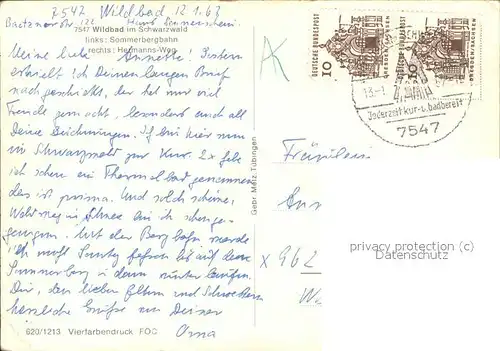 7547 Wildbad 12.1.67
Baetznerstr. 122
7547 Wildbad im Schwarzwald
links: Sommerbergbahn
rechts: Hermanns-Weg
Meine liebe Annette! Gestern
erhielt ich Deinen langen Brief
nachgeschickt, der hat mir viel
Freude gemacht, besonders auch all
Deine Zeichnungen. Ich bin hier nun
im Schwarzwald zur Kur. 2x habe
ich schon ein Thermalbad genommen
das ist prima. Und solch schöne
Wege im Schnee bin ich schon ge-
gangen. Mit der Bergbahn werde
ich auf den
Sommerberg u. dann runter laufen.
Dir, den lieben Eltern und Schwestern
herzliche Grüße von Deiner
Oma
620/1213 Vierfarbendruck FOC
Gebr. Metz, Tübingen
DEUTSCHE BUNDESPOST
10
DRESDEN/SACHSEN
DEUTSCHE BUNDESPOST
10
DRESDEN/SACHSEN
13.-1.
Jederzeit kur- u. badbereit
7547
Fräulein
Ann
privacy protection (c)
Datenschutz (c)
x 962